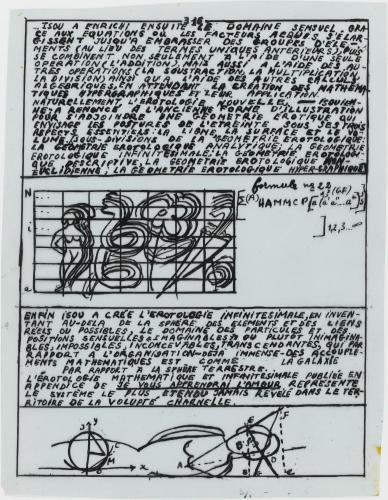 ...ISOU A ENRICHI ENSUITE LE DOMAINE SENSUEL GRA-
CE AUX ÉQUATIONS OÙ LES FACTEURS ACQUIS S'ÉLAR-
GISSENT JUSQU'À EMBRASSER DES GROUPES D'ÉLÉ-
MENTS (AU LIEU DES TERMES UNIQUES ANTÉRIEURS), PUIS
SE COMBINENT NON SEULEMENT À L'AIDE D'UNE SEULE
OPÉRATION (L'ADDITION), MAIS AUSSI À L'AIDE DES AU-
TRES OPÉRATIONS (LA SOUSTRACTION, LA MULTIPLICATION,
LA DIVISION) AINSI QU'À L'AIDE DES AUTRES CALCULS
ALGÉBRIQUES, EN ATTENDANT LA CRÉATION DES MATHÉMA-
TIQUES HYPERGRAPHIQUES ET LEUR APPLICATION.
NATURELLEMENT L'ÉROTOLOGIE NOUVELLE
À RENONCÉ À L'ANCIENNE FORME D'ILLUSTRATION
POUR S'ADJOINDRE UNE GÉOMÉTRIE ÉROTIQUE QUI
ENVISAGE LES POSTURES DE L'ÉTREINTE SOUS SES TROIS
ASPECTS ESSENTIELS: LA LIGNE, LA SURFACE ET LE VO-
LUME, SOUS-DIVISIONS DE LA GÉOMÉTRIE ÉROTOLOGIQUE:
LA GÉOMÉTRIE ÉROTOLOGIQUE ANALYTIQUE, LA GÉOMÉTRIE
ÉROTOLOGIQUE INFINITÉSIMALE, LA GÉOMÉTRIE ÉROTOLOGI-
QUE DESCRIPTIVE, LA GÉOMÉTRIE ÉROTOLOGIQUE NON
EUCLIDIENNE, LA GÉOMÉTRIE ÉROTOLOGIQUE HYPERGRAPHIQUE
N
i
a
formule nº 22
HAMMCP
1,2,3...
ENFIN ISOU A CRÉÉ L'ÉROTOLOGIE INFINITÉSIMALE, EN INVEN-
TANT AU-DELÀ DE LA SPHÈRE DES ÉLÉMENTS ET DES LIENS
RÉELS OU POSSIBLES, LE DOMAINE DES PARTICULES ET DES
POSITIONS SENSUELLES "IMAGINABLES" OU PLUTÔT INIMAGINA-
BLES, IMPOSSIBLES, INCONCEVABLES, TRANSCENDANTES, QUI PAR
RAPPORT À L'ORGANISATION-DÉJÀ IMMENSE-DES ACCOUPLE-
MENTS MATHÉMATIQUES EST COMME LA GALAXIE
PAR RAPPORT À LA SPHÈRE TERRESTRE.
L'ÉROTOLOGIE MATHÉMATIQUE ET INFINITÉSIMALE PUBLIÉE EN
APPENDICE DE JE VOUS APPRENDRAI L'AMOUR REPRÉSENTE
LE SYSTÈME LE PLUS ÉTENDU JAMAIS RÉVÉLÉ DANS LE TER-
RITOIRE DE LA VOLUPTÉ CHARNELLE.
y
C
M
x
A
E
F
B
D
C